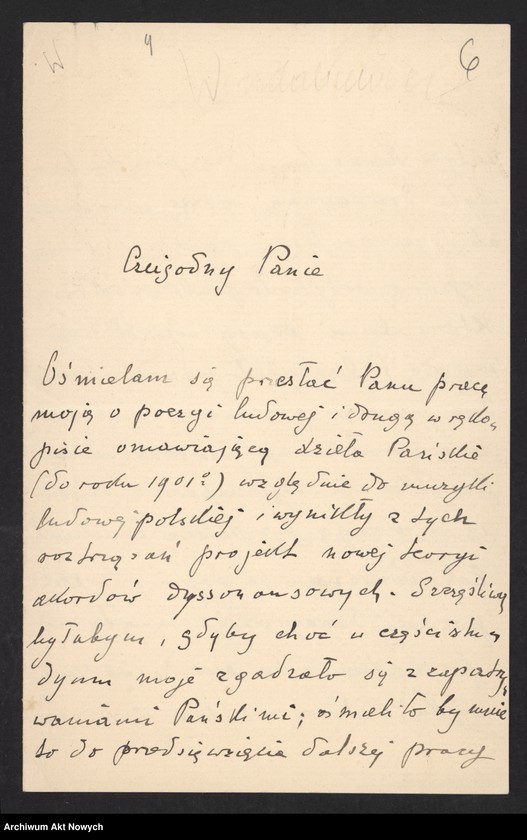 W 4 6
Czcigodny Panie
Ośmielam się przesłać Panu pracę
moją o poezyi ludowej i drugą w ręko-
pisie omawiającą dzieła Pańskie
(do roku 1901º) względnie do muzyki
ludowej polskiej i wynikły z tych
roztrząsań projekt nowej teoryi
akordów dyssonansowych. Szczęśliwy
byłabym, gdyby choć w części stu-
dyum moje zgadzało się z zapatry-
waniami Pańskimi; ośmieliło by mnie
to do przedsięwzięcia dalszej pracy
Archiwum Akt Nowych